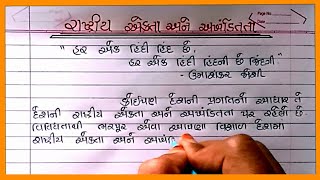 રાષ્ટ્રીય એકતા અને અખંડિતતા
"હર એક હિંદી હિંદ છે,
હર એક હિંદી હિંદની છે જિંદગી."
- ઉમાશંકર જોશી
કોઈપણ દેશની પ્રગતિનો આધાર તે
દેશની રાષ્ટ્રીય એકતા અને અખંડિતતા પર રહેલો છે.
વિવિધતાથી ભરપૂર એવા આપણા વિશાળ દેશમાં
રાષ્ટ્રીય એકતા અને અખંડિ